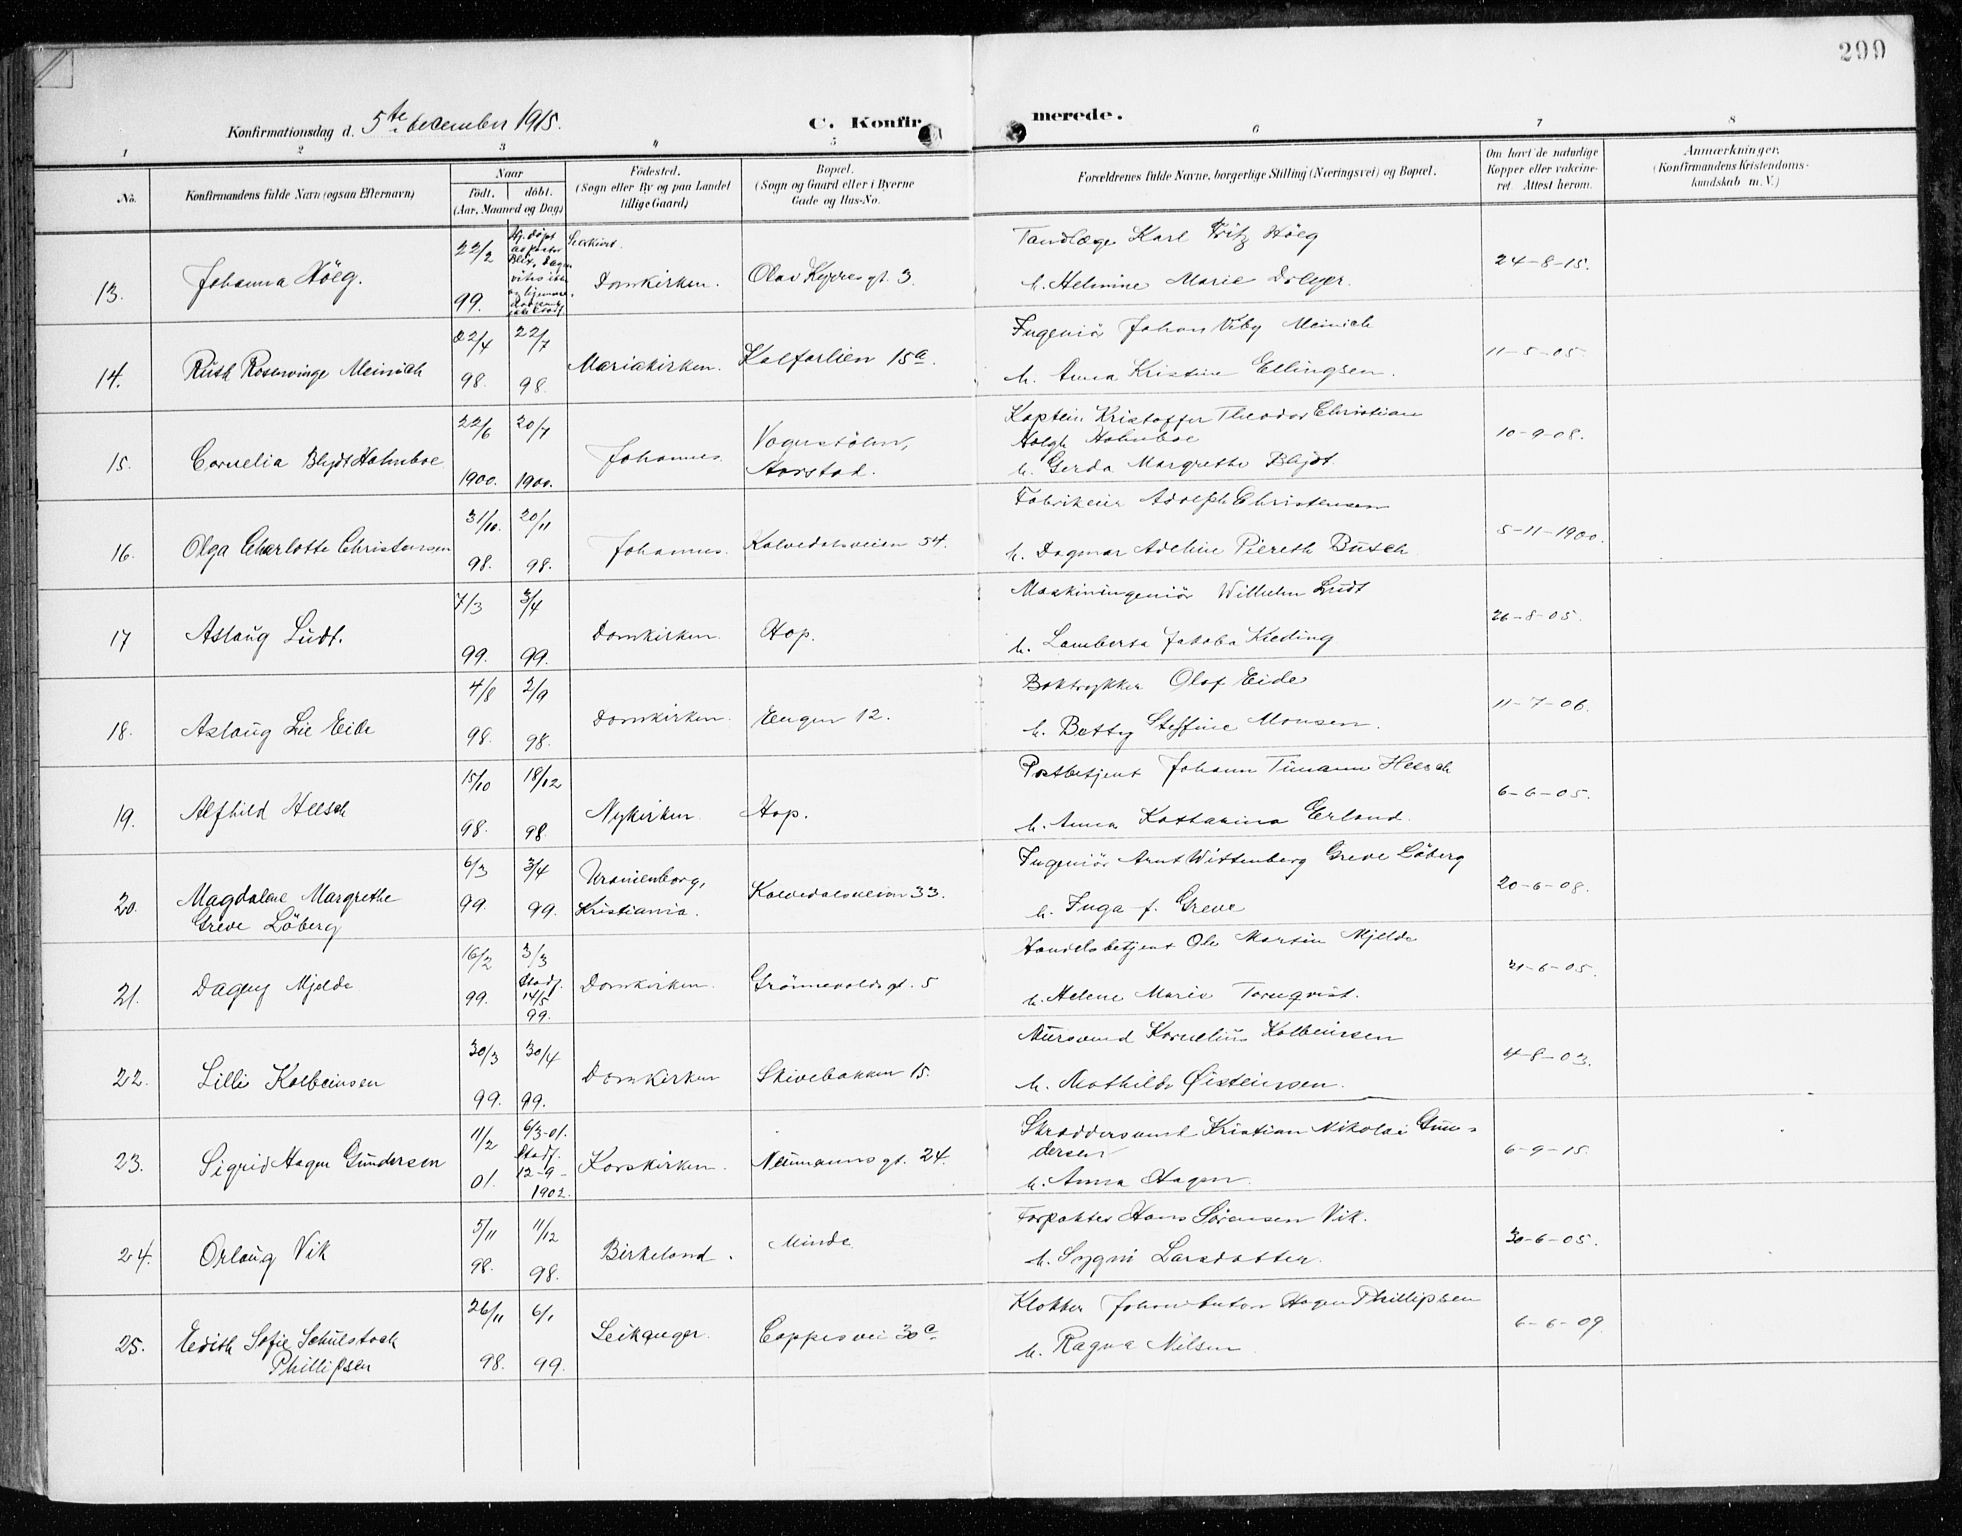 299
Konfirmationsdag d. 5te december 1915. C. Konfirmerede.
1 2 3 4 5 6 7 8
No. Konfirmandens fulde Navn (ogsaa Efternavn) Naar født. døbt. (Aar, Maaned og Dag) Fødested. (Sogn eller By og paa Landet tillige Gaard) Bopæl. (Sogn og Gaard eller i Byerne Gade og Hus-No. Forældrenes fulde Navne, borgerlige Stilling (Næringsvei) og Bopæl. Om havt de naturlige Kopper eller vakcineret. Attest herom. Anmærkninger. (Konfirmandens Kristendomskundskab m. V.)
22/2 Hj. døpt Tandlæge Karl Fritz Höeg
13. Johanna Höeg. Domkirken. Olav Kyrresgt. 3. 24-8-15.
99. h. Helmine Marie
22/4 22/7 Ingeniör Johan Viby Meinich
14. Ruth Rosenvinge Meinich Mariakirken. Kalfarlien 15a. 11-5-05.
98. 98. h. Anna Kristine Ellingsen.
22/6 20/7 Kaptein Kristoffer Theodor Christian
Holmboe
15. Cornelia Blydt Holmboe Johannes Aarstad. 10-9-08.
1900. 1900. h. Gerda Margrethe Blydt.
31/10. 20/11 Fabrikeier Adolph Christensen
16. Olga Charlotte Christensen Johannes. Kalvedalsveien 54. 5-11-1900.
98. 98. h. Dagmar Adeline Piereth Busch
7/3 3/4 Maskiningeniör Wilhelm Ludt
17 Aslaug Ludt. Domkirken. Hop. 26-8-05.
99. 99. h. Lamberta Jakoba Kieding
4/8 2/9 Boktrykker Olaf Eide
18. Aslaug Lie Eide Domkirken. Engen 12. 11-7-06.
98. 98. h. Betty Steffine Monsen.
15/10 18/12 Postbetjent Johann Timann Heesch
19. Alfhild Heesch Nykirken. Hop. 6-6-05.
98. 98. h. Anna Katharina Erland.
6/3 3/4 Uranienborg, Ingeniör Arnt Wittenberg Greve Löberg
20. Magdalene Margrethe Kalvedalsveien 33. 20-6-08.
Greve Löberg
99. 99. Kristiania. h. Inga f. Greve
16/2 3/3 Handelsbetjent Ole Martin Mjelde
21. Dagny Mjelde Stadf. Domkirken. Grönnevoldsgt. 5 21-6-05.
99. 14/5 99. h. Helene Marie Tornqvist.
30/3 30/4 Mursvend Kornelius Kolbeinsen
22. Lilli Kolbeinsen Domkirken Skivebakken 15. 4-8-03.
99. 99. h. Mathilde Øisteinsen.
11/2 6/3-01. Skræddersvend Kristian Nikolai Gundersen
23. Sigrid Hagen Gundersen Stadf. Korskirken. Neumannsgt. 24. 6-9-15.
01. 12-9-1902. h. Anna Hagen.
5/11 11/12 Forpakter Hans Sörensen Vik.
24. Orlaug Vik Birkeland. Minde 30-6-05.
98. 98. h. Sygni Larsdatter.
26/11 6/1 Klokker Johan Anton Hagen Phillipsen
25. Edith Sofie Schulstock Leikanger. Coppesvei 30c 6-6-09.
Phillipsen
98. 99. h. Ragna Nilsen